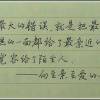 最大的错误,就是把最
的一面都给了最亲近的
宽容给了陌生人
——向至亲至爱的